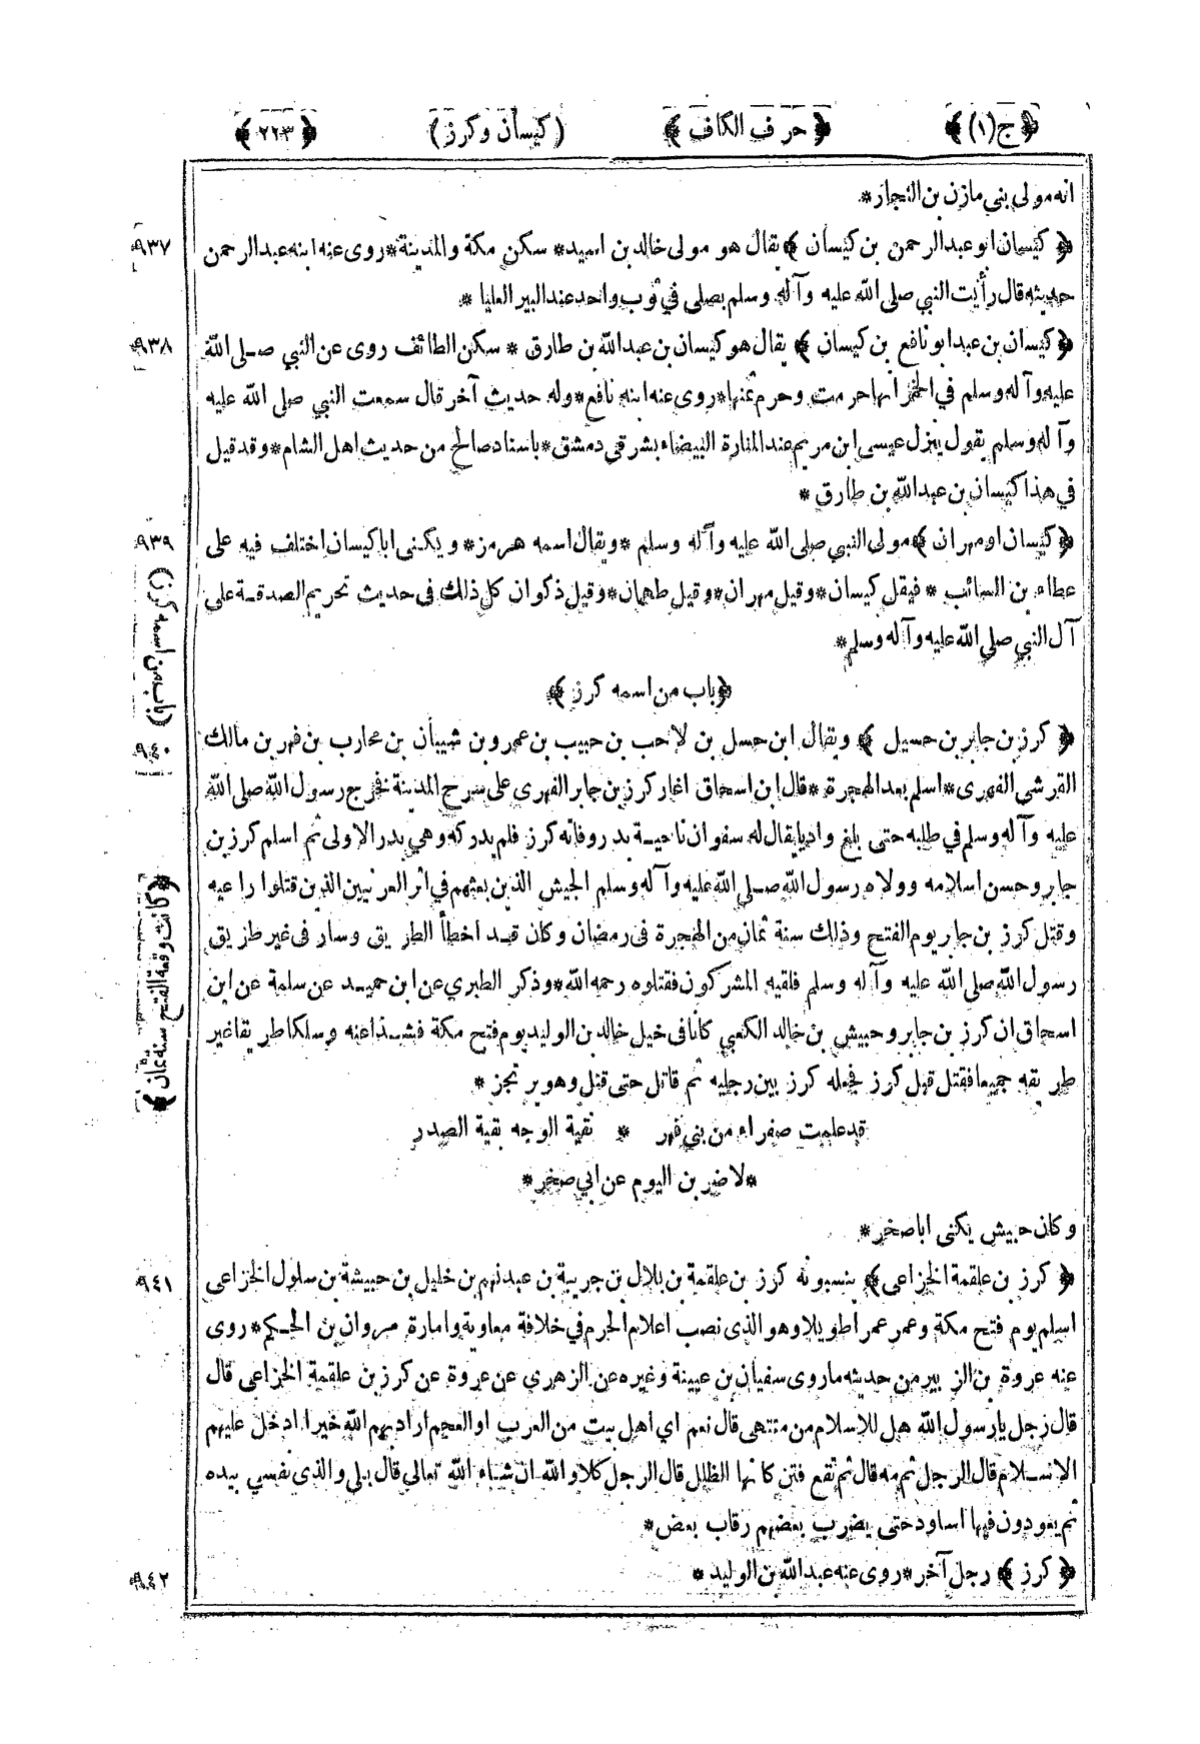 ﴿ج(١)﴾ ﴿حرف الكاف﴾ (كيسان وكرز) ﴿٢٢٣﴾
انه مولى بني مازن بن النجار*
﴿كيسان ابو عبد الرحمن بن كيسان﴾ يقال هو مولى خالد بن اسيد* سكن مكة والمدينة* روى عنه ابنه عبد الرحمن
حديثه قال رأيت النبي صلى الله عليه وآله وسلم يصلى في ثوب واحد عند البير العليا*
﴿كيسان بن عبد ابو نافع بن كيسان﴾ يقال هو كيسان بن عبد الله بن طارق* سكن الطائف روى عن النبي صلى الله
عليه وآله وسلم في الخمر انها حرمت وحرم ثمنها* روى عنه ابنه نافع* وله حديث آخر قال سمعت النبي صلى الله عليه
وآله وسلم يقول ينزل عيسى ابن مريم عند المنارة البيضاء بشرقي دمشق* باسناد صالح من حديث اهل الشام* وقد قيل
في هذا كيسان بن عبد الله بن طارق*
﴿كيسان او مهران﴾ مولى النبي صلى الله عليه وآله وسلم* ويقال اسمه هرمز* ويكنى ابا كيسان اختلف فيه على
عطاء بن السائب* فيقل كيسان* وقيل مهران* وقيل طهمان* وقيل ذكوان كل ذلك في حديث تحريم الصدقة على
آل النبي صلى الله عليه وآله وسلم*
﴿باب من اسمه كرز﴾
﴿كرز بن جابر بن حسيل﴾ ويقال ابن حسل بن لاحب بن حبيب بن عمرو بن شيبان بن محارب بن فهر بن مالك
القرشي الفهرى* اسلم بعد الهجرة* قال ابن اسحاق اغار كرز بن جابر الفهرى على سرح المدينة فخرج رسول الله صلى الله
عليه وآله وسلم في طلبه حتى بلغ واديا يقال له سفوان ناحية بدر وفاته كرز فلم يدركه وهي بدر الاولى ثم اسلم كرز بن
جابر وحسن اسلامه وولاه رسول الله صلى الله عليه وآله وسلم الجيش الذين بعثهم في اثر العرنيين الذين قتلوا راعيه
وقتل كرز بن جابر يوم الفتح وذلك سنة ثمان من الهجرة فى رمضان وكان قد أخطأ الطريق وسار فى غير طريق
رسول الله صلى الله عليه وآله وسلم فلقيه المشركون فقتلوه رحمه الله* وذكر الطبري عن ابن حميد عن سلمة عن ابن
اسحاق ان كرز بن جابر وحبيش بن خالد الكعبي كانا فى خيل خالد بن الوليد يوم فتح مكة فشذا عنه وسلكا طريقا غير
طريقه جميعا فقتل قبل كرز فجعله كرز بين رجليه ثم قاتل حتى قتل وهو يرتجز*
قد علمت صفراء من بني فهر * نقية الوجه نقية الصدر
*لاضربن اليوم عن ابي صخر*
وكان حبيش يكنى ابا صخر*
﴿كرز بن علقمة الخزاعى﴾ ينسبونه كرز بن علقمة بن بلال بن جريبة بن عبد نهم بن خليل بن حبيشة بن سلول الخزاعى
اسلم يوم فتح مكة وعمر عمرا طويلا وهو الذى نصب اعلام الحرم في خلافة معاوية وامارة مروان بن الحكم* روى
عنه عروة بن الزبير من حديثه ما روى سفيان بن عيينة وغيره عن الزهري عن عروة عن كرز بن علقمة الخزاعى قال
قال رجل يا رسول الله هل للاسلام من منتهى قال نعم اي اهل بيت من العرب او العجم اراد بهم الله خيرا ادخل عليهم
الاسلام قال الرجل ثم مه قال ثم تقع فتن كانها الظلل قال الرجل كلا والله ان شاء الله تعالى قال بلى والذى نفسي بيده
ثم يعودون فيها اساود حتى يضرب بعضهم رقاب بعض*
﴿كرز﴾ رجل آخر* روى عنه عبد الله بن الوليد*
٩٣٧
٩٣٨
٩٣٩
(باب من اسمه كرز)
٩٤٠
﴿كانت وقعة الفتح سنة ثمان﴾
٩٤١
٩٤٢